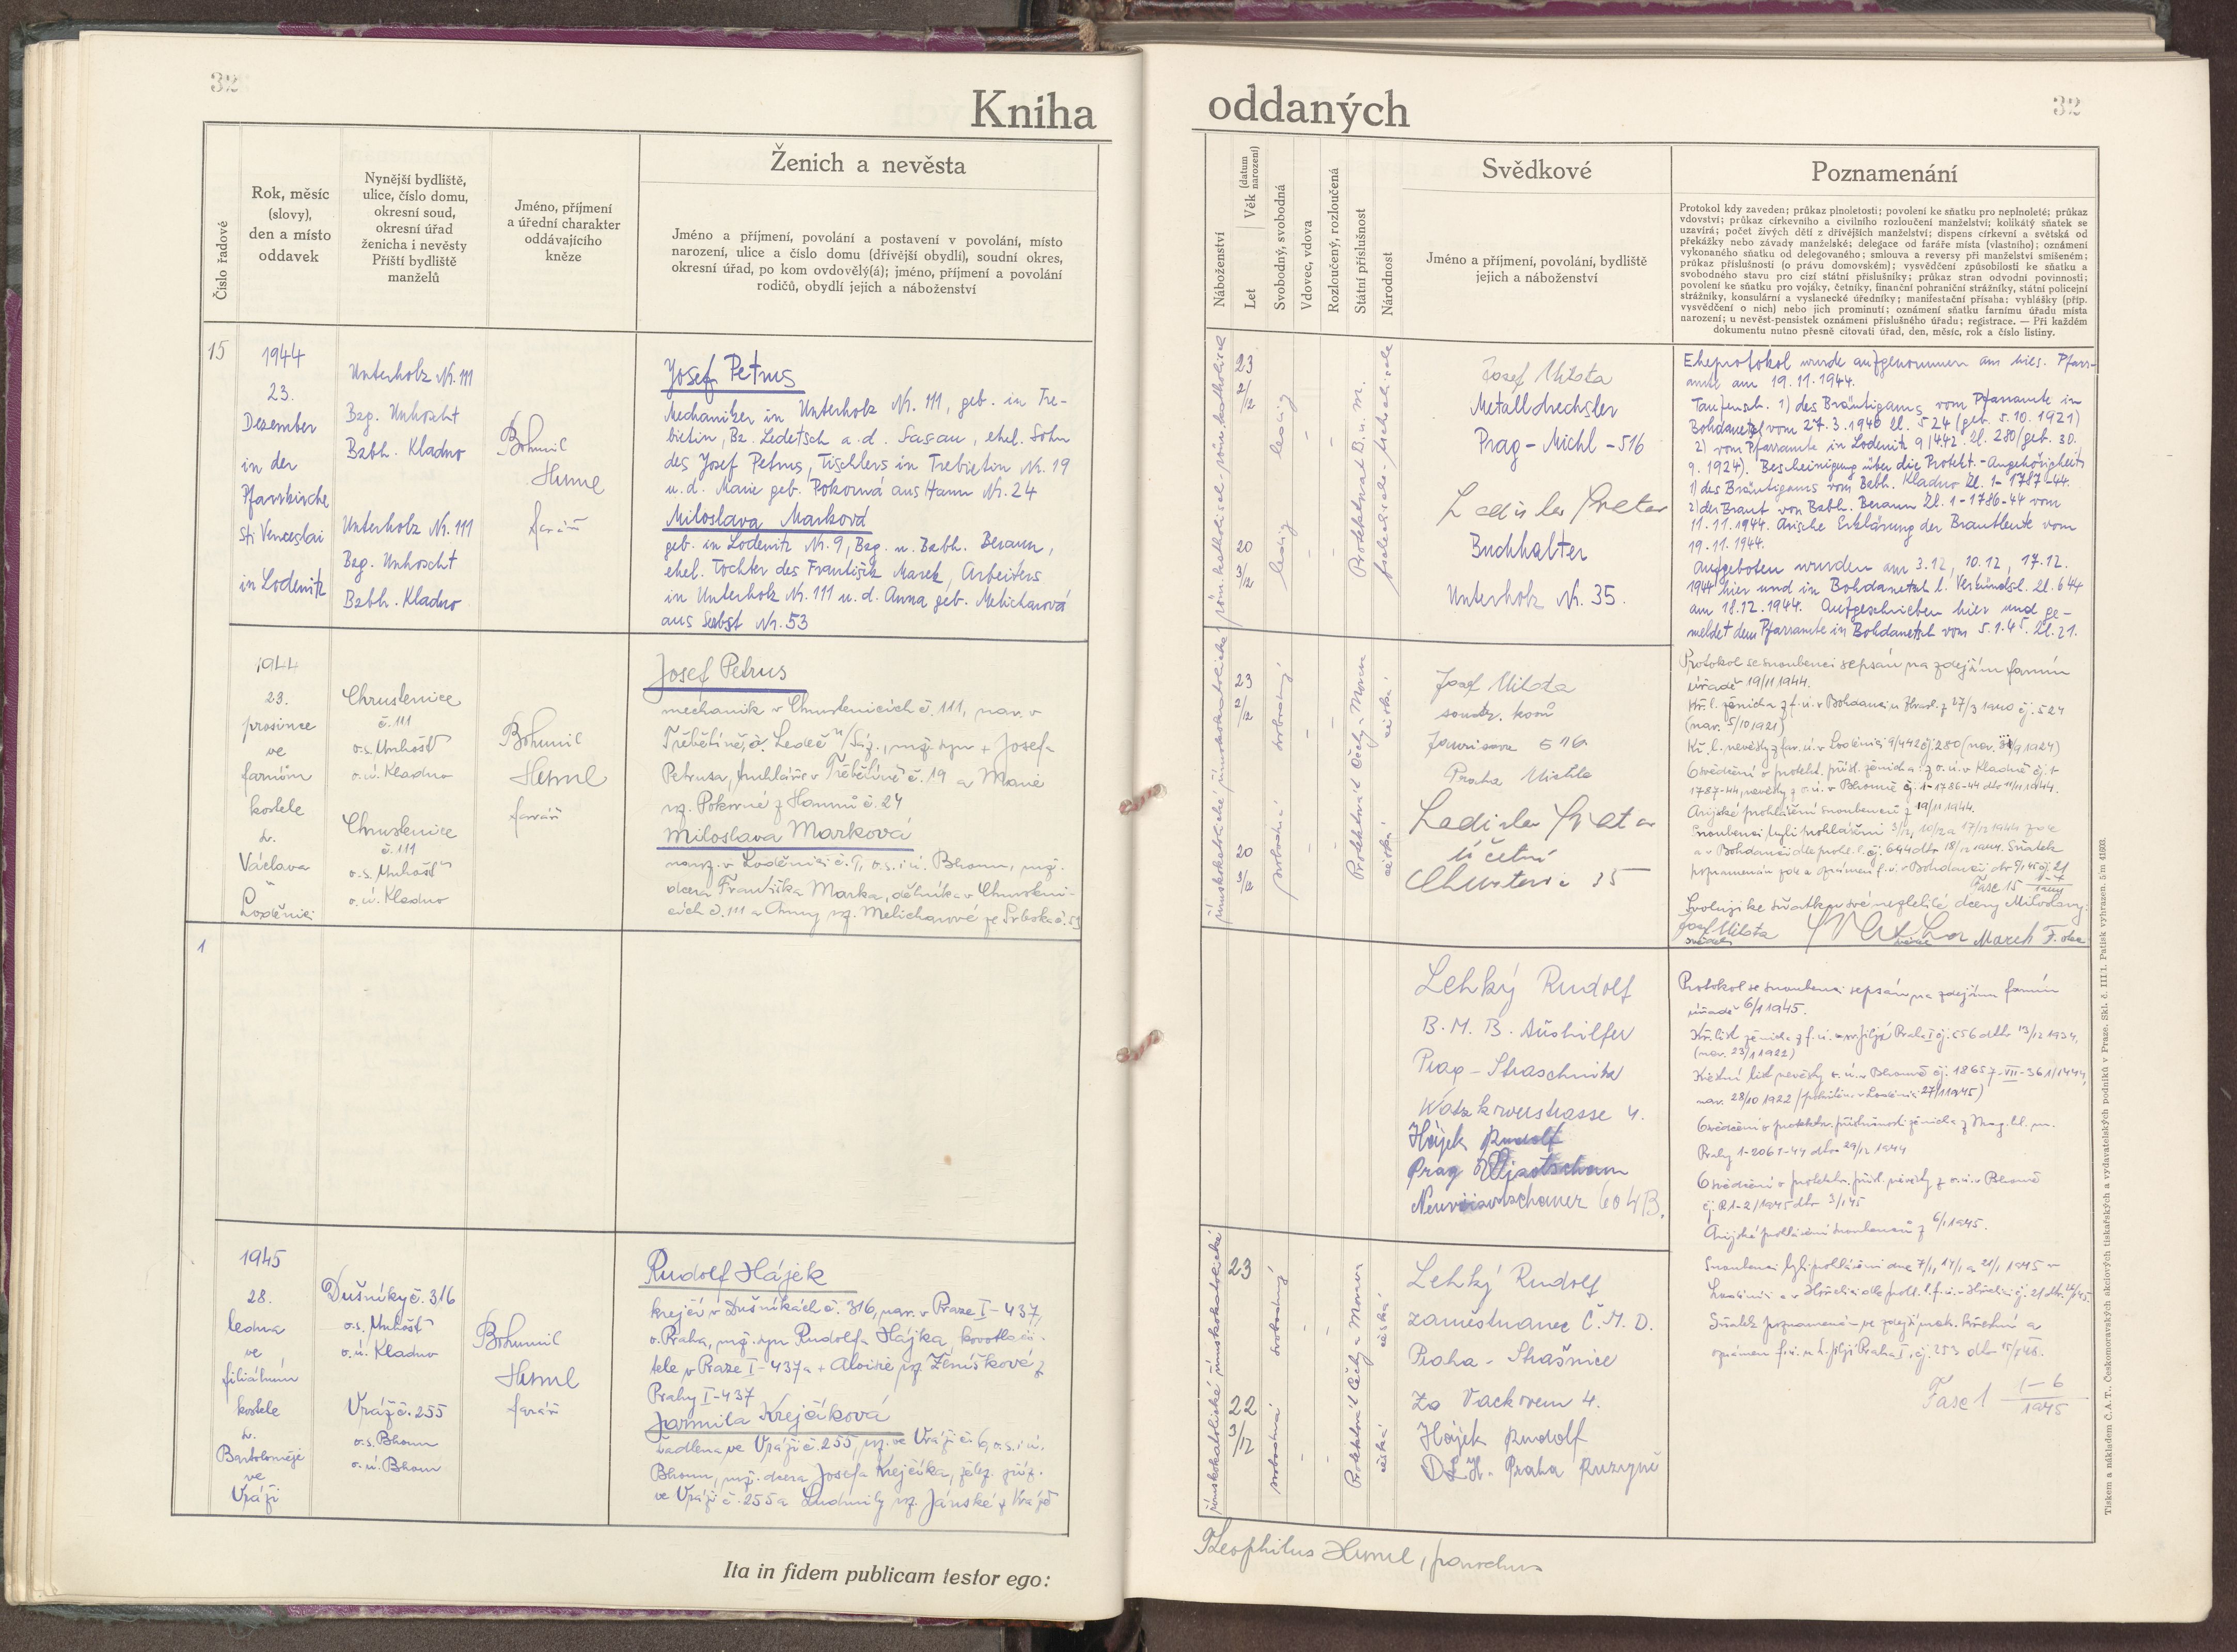 32
Kniha
Číslo řadové
Rok, měsíc
(slovy),
den a místo
oddavek
Nynější bydliště,
ulice, číslo domu,
okresní soud,
okresní úřad
ženicha i nevěsty
Příští bydliště
manželů
Jméno, příjmení
a úřední charakter
oddávajícího
kněze
Ženich a nevěsta
Jméno a příjmení, povolání a postavení v povolání, místo
narození, ulice a číslo domu (dřívější obydlí), soudní okres,
okresní úřad, po kom ovdovělý(á); jméno, příjmení a povolání
rodičů, obydlí jejich a náboženství
15
1944
23.
Dezember
in der
Pfarrkirche
Sti Venceslai
in Lodenitz
Unterholz Nr. 111
Bzg. Unhoscht
Bzbh. Kladno
Unterholz Nr. 111
Bzg. Unhoscht
Bzbh. Kladno
Bohumil
Huml
farář
Josef Petrus
Mechaniker in Unterholz Nr. 111, geb. in Tre-
bietin, Bz. Ledetsch a.d. Sasau, ehel. Sohn
des Josef Petrus, Tischlers in Trebietin Nr. 19
u. d. Marie geb. Pokorná aus Hamm Nr. 24
Miloslava Marková
geb. in Lodenitz Nr. 9, Bzg. u. Bzbh. Beraun,
ehel. Tochter des František Marek, Arbeiters
in Unterholz Nr. 111 u. d. Anna geb. Melicharová
aus Nr. 53
1944
23.
prosince
ve
farním
kostele
sv.
Václava
v
Loděnici
Chrustenice
č. 111
o.s. Unhošť
o.ú. Kladno
Chrustenice
č. 111
o.s. Unhošť
o.ú. Kladno
Bohumil
Huml
farář
Josef Petrus
mechanik v Chrustenicích č. 111, nar. v
Třebětíně, o. Ledeč n/Sáz., mž. syn + Josefa
Petrusa, truhláře v Třebětíně č. 19 a Marie
roz. Pokorné z Hamrů č. 24
Miloslava Marková
naroz. v Loděnici č. 9, o.s. i ú. Beroun, mž.
dcera Františka Marka, dělníka v Chrusteni-
cích č. 111 a Anny roz. Melicharové ze Srbska č. 53
1
1945
28.
ledna
ve
filiálním
kostele
sv.
Bartoloměje
ve
Vráži
Dušníky č. 316
o.s. Unhošť
o.ú. Kladno
Vráž č. 255
o.s. Beroun
o.ú. Beroun
Bohumil
Huml
farář
Rudolf Hájek
krejčí v Dušníkách č. 316, nar. v Praze I-437,
o. Praha, mž. syn Rudolfa Hájka, kovotla-
tele v Praze I-437 a + Aloisie roz. Ženíškové z
Prahy I-437
Jarmila Krejčíková
švadlena ve Vráži č. 255, roz. ve Vráži č. 6, o.s. i ú.
Beroun, mž. dcera Josefa Krejčíka, želez. zříz.
ve Vráži č. 255 a Ludmily roz. Jánské z Vráže
Ita in fidem publicam testor ego:
oddaných
32
Náboženství
Let
Věk (datum narození)
Svobodný, svobodná
Vdovec, vdova
Rozloučený, rozloučená
Státní příslušnost
Národnost
Svědkové
Jméno a příjmení, povolání, bydliště
jejich a náboženství
Poznamenání
Protokol kdy zaveden; průkaz plnoletosti; povolení ke sňatku pro neplnoleté; průkaz
vdovství; průkaz církevního a civilního rozloučení manželství; kolikátý sňatek se
uzavírá; počet živých dětí z dřívějších manželství; dispens církevní a světská od
překážky nebo závady manželské; delegace od faráře místa (vlastního); oznámení
vykonaného sňatku od delegovaného; smlouva a reversy při manželství smíšeném;
průkaz příslušnosti (o právu domovském); vysvědčení způsobilosti ke sňatku a
svobodného stavu pro cizí státní příslušníky; průkaz stran odvodní povinnosti;
povolení ke sňatku pro vojáky, četníky, finanční pohraniční strážníky, státní policejní
strážníky, konsulární a vyslanecké úředníky; manifestační přísaha; vyhlášky (příp.
vysvědčení o nich) nebo jich prominutí; oznámení sňatku farnímu úřadu místa
narození; u nevěst-pensistek oznámení příslušného úřadu; registrace. — Při každém
dokumentu nutno přesně citovati úřad, den, měsíc, rok a číslo listiny.
röm. katholisch - röm. katholisch
23
2/12
20
3/12
ledig
ledig
Protektorat B. u. M.
tschechisch - tschechisch
Josef Milota
Metalldrechsler
Prag - Michl - 516
Buchhalter
Unterholz Nr. 35.
Eheprotokol wurde aufgenommen am hies. Pfarr-
amte am 19.11.1944.
Taufsch. 1) des Bräutigams vom Pfarramte in
Bohdanetsch vom 27.3.1940 Zl. 524 (geb. 5.10.1921)
2) vom Pfarramte in Lodenitz 9/442. Zl. 280 (geb. 30.
9. 1924). Bescheinigung über die Protekt.-Angehörigkeit
1) des Bräutigams vom Bzbh. Kladno Zl. 1-1787-44.
2) der Braut von Bzbh. Beraun Zl. 1-1786-44 vom
11.11.1944. Arische Erklärung der Brautleute vom
19.11.1944.
Aufgeboten wurden am 3.12, 10.12, 17.12.
1944 hier und in Bohdanetsch l. Verkündsch. Zl. 644
am 18.12.1944. Aufgeschrieben hier und ge-
meldet dem Pfarramte in Bohdanetsch vom 5.1.45. Zl. 21.
římskokatolické římskokatolické
23
2/12
20
3/12
svobodný
svobodná
Protektorát Čechy a Morava
česká
česká
Josef Milota
soustr. kovů
516
Praha Michle
účetní
35
Protokol se snoubenci sepsán na zdejším farním
úřadě 19/11 1944.
Kř. l. ženicha z f. ú. v Bohdanči n. z 27/3 1940 čj. 524
(nar. 5/10 1921)
Kř. l. nevěsty z far. ú. v Loděnici 9/442 čj. 280 (nar. 30/9 1924)
Osvědčení o protekt. přísl. ženicha z o. ú. v Kladně čj. 1-
1787-44, nevěsty z o. ú. v Berouně čj. 1-1786-44 dto 11/11 1944.
Arijské prohlášení snoubenců z 19/11 1944.
Snoubenci byli prohlášeni 3/12, 10/12 a 17/12 1944 zde
a v Bohdanči dle prohl. l. čj. 644 dto 18/12 1944. Sňatek
poznamenán zde a oznámen f. ú. v Bohdanči dto 5/1 45 čj. 21
Fasc 15
1944
Svoluji ke sňatku své nezletilé dcery Miloslavy:
Josef Milota
svědek
Marek F. otec
Lehký Rudolf
B. M. B. Aushilfer
Prag - Straschnitz
4.
Hájek Rudolf
Prag
604 B.
Protokol se snoubenci sepsán na zdejším farním
úřadě 6/1 1945.
Kř. list ženicha z f. ú. u sv. Jiljí Praha I čj. 656 dto 13/12 1934,
(nar. 23/1 1922)
Křestní list nevěsty
nar. 28/10 1922
Osvědčení o protektor. příslušnosti ženicha z Mag. hl. m.
Prahy 1-2061-44 dto 29/12 1944
Osvědčení o protektor. přísl. nevěsty z o. ú. v Berouně
čj. 1-2/1945 dto 3/1 45
Arijské prohlášení snoubenců z 6/1 1945.
Snoubenci byli prohlášeni dne 7/1, 14/1 a 21/1 1945 v
Loděnici
Sňatek poznamenán
Fasc 1 1-6
1945
římskokatolické římskokatolické
23
22
3/12
svobodný
svobodná
Protektorát Čechy a Morava
česká
česká
Lehký Rudolf
zaměstnanec Č. M. D.
Praha - Strašnice
Za Vackovem 4.
Hájek Rudolf
Praha Ruzyně
Theophilus Huml, parochus
Tiskem a nákladem Č. A. T., Českomoravských akciových tiskařských a vydavatelských podniků v Praze. Skl. č. III/1. Patisk vyhrazen.